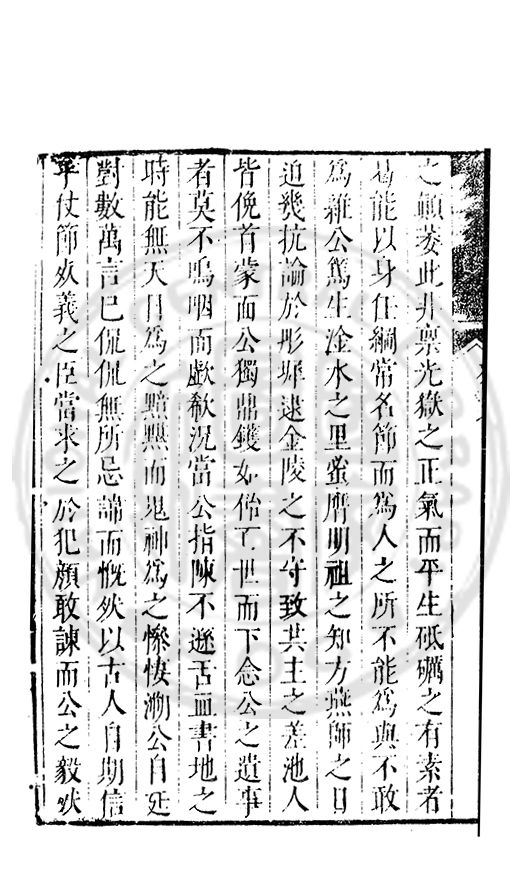 之頓萎此非稟光嶽之正氣而平生砥礪之有素者
曷能以身任綱常名節而為人之所不能為與不敢
為雖公篤生淦水之里蜜膺明祖之知方燕師之日
迫幾抗論於彤墀逮金陵之不守致共主之差池人
皆俛首蒙面公獨鼎鑊如飴百世而下念公之遺事
者莫不嗚咽而歔欷況當公指陳不遜舌血書地之
時能無天日為之黯黮而鬼神為之慘悽溯公自廷
對數萬言已侃侃無所忌諱而慨然以古人自期信
乎仗節死義之臣當求之於犯顏敢諫而公之毅然